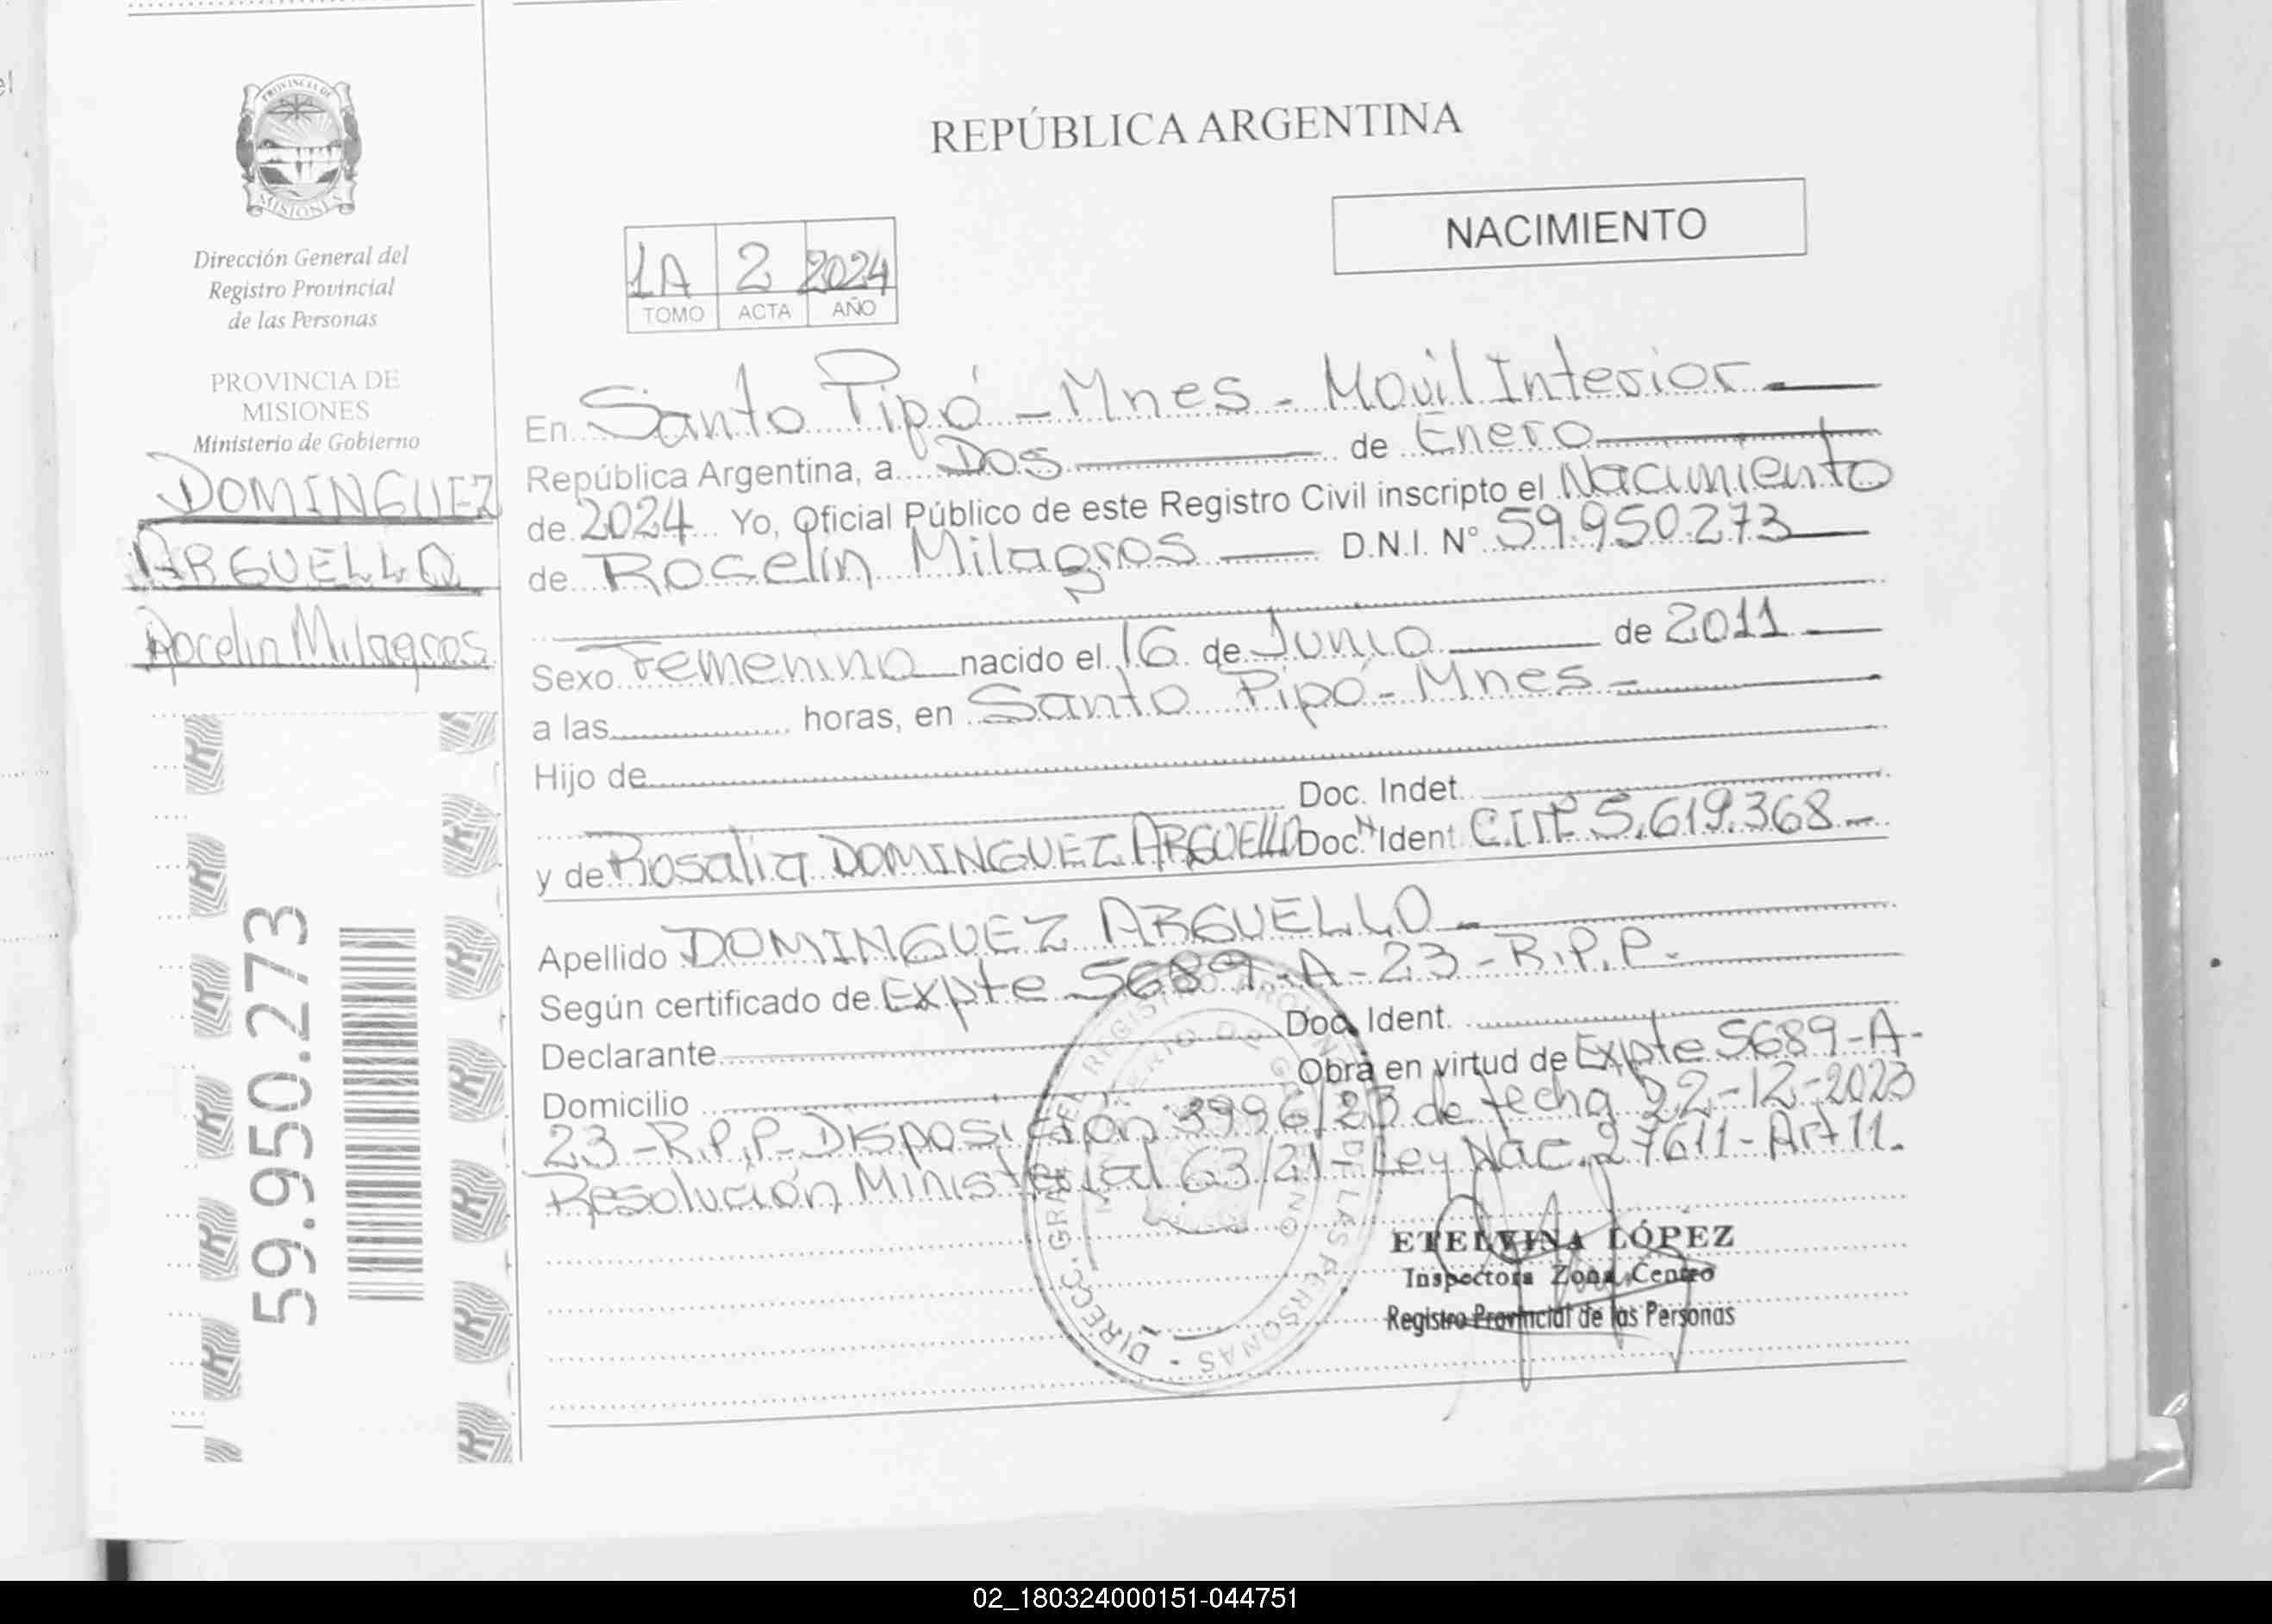 PROVINCIA DE
MISIONES
Dirección General del
Registro Provincial
de las Personas
PROVINCIA DE
MISIONES
Ministerio de Gobierno
DOMINGUEZ
ARGUELLO
Rocelin Milagros
59.950.273
REPÚBLICA ARGENTINA
NACIMIENTO
1A 2 2024
TOMO ACTA AÑO
En Santo Pipó - Mnes - Movil Interior
República Argentina, a Dos de Enero
de 2024 Yo, Oficial Público de este Registro Civil inscripto el Nacimiento
de Rocelin Milagros D.N.I. N° 59.950.273
Sexo Femenino nacido el 16 de Junio de 2011
a las horas, en Santo Pipó - Mnes -
Hijo de
Doc. Indet.
y de Rosalia DOMINGUEZ ARGUELLO Doc. Ident C.I.N° 5.619.368 -
Apellido DOMINGUEZ ARGUELLO -
Según certificado de Expte 5689 - A - 23 - R.P.P.
Declarante Doc. Ident.
Domicilio Obra en virtud de Expte 5689-A-
23 - R.P.P - Disposición 3996/23 de fecha 22-12-2023
Resolución Ministerial 63/21 - Ley Nac. 27611 - Art 11.
ETELVINA LÓPEZ
Inspectora Zona Centro
Registro Provincial de las Personas
02_180324000151-044751